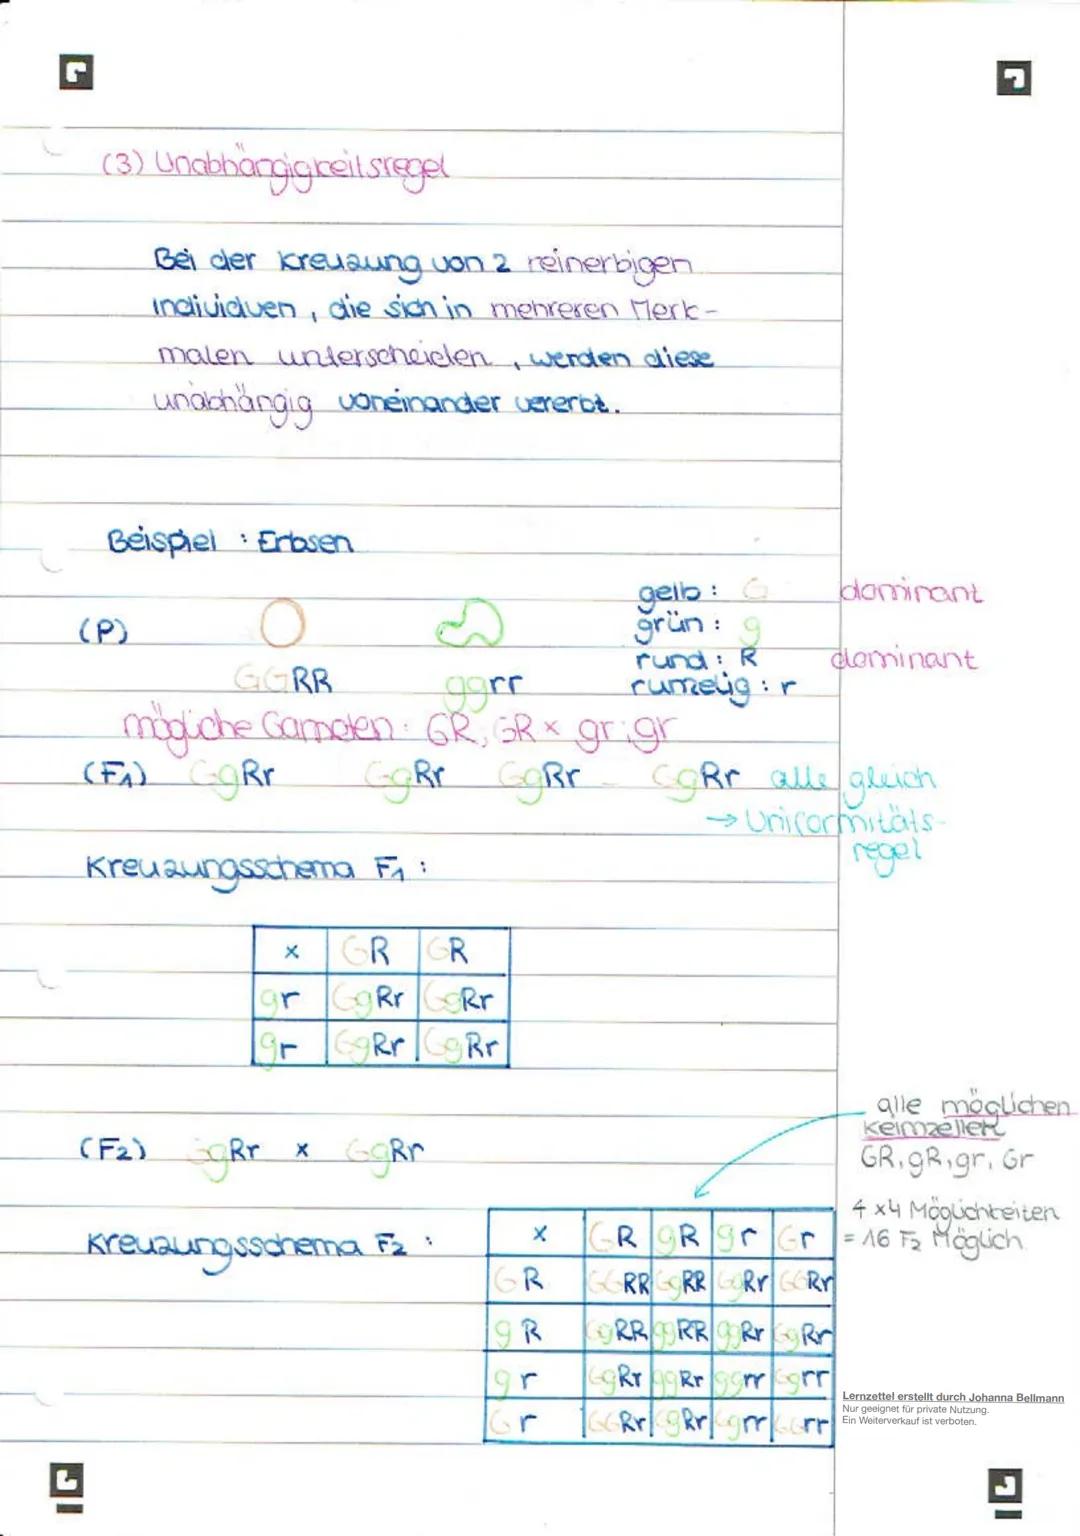 (3) Unabhängigkeitsregel
Bei der Kreuzung von 2 reinerbigen
Individuen, die sich in mehreren Merk-
malen unterscheiden, werden diese
unabhängig voneinander vererbt.
Beispiel : Erbsen
gelb : G dominant
grün : g
(P)
rund : R dominant
rumelig : r
GGRR ggrr
mögliche Gameten : GR, GR x gr ; gr
(F1) GgRr GgRr GgRr GgRr alle gleich
→ Uniformitäts-
regel
Kreuzungsschema F1 :
x GR GR
gr GgRr GgRr
gr GgRr GgRr
alle möglichen
Keimzellen
(F2) GgRr x GgRr
GR, gR, gr, Gr
4 x4 Möglichkeiten
= 16 F2 Möglich
Kreuzungsschema F2 :
x GR gR gr Gr
GR GGRR GgRR GgRr GGRr
gR GgRR ggRR ggRr GgRr
gr GgRr ggRr ggrr Ggrr
Gr GGRr GgRr Ggrr GGrr
Lernzettel erstellt durch Johanna Bellmann
Nur geeignet für private Nutzung.
Ein Weiterverkauf ist verboten.